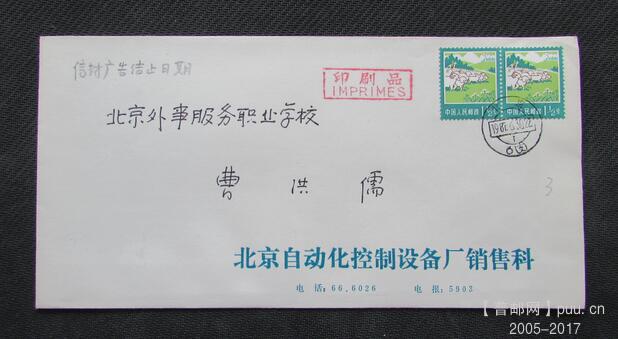 信封广告结止日期
印刷品
IMPRIMES
中国人民邮政 1½分
中国人民邮政 1½分
北京外事服务职业学校
曹洪儒
3
北京自动化控制设备厂销售科
电 话:66.6026 电 报:5903
【普邮网】puu.cn
2005-2017